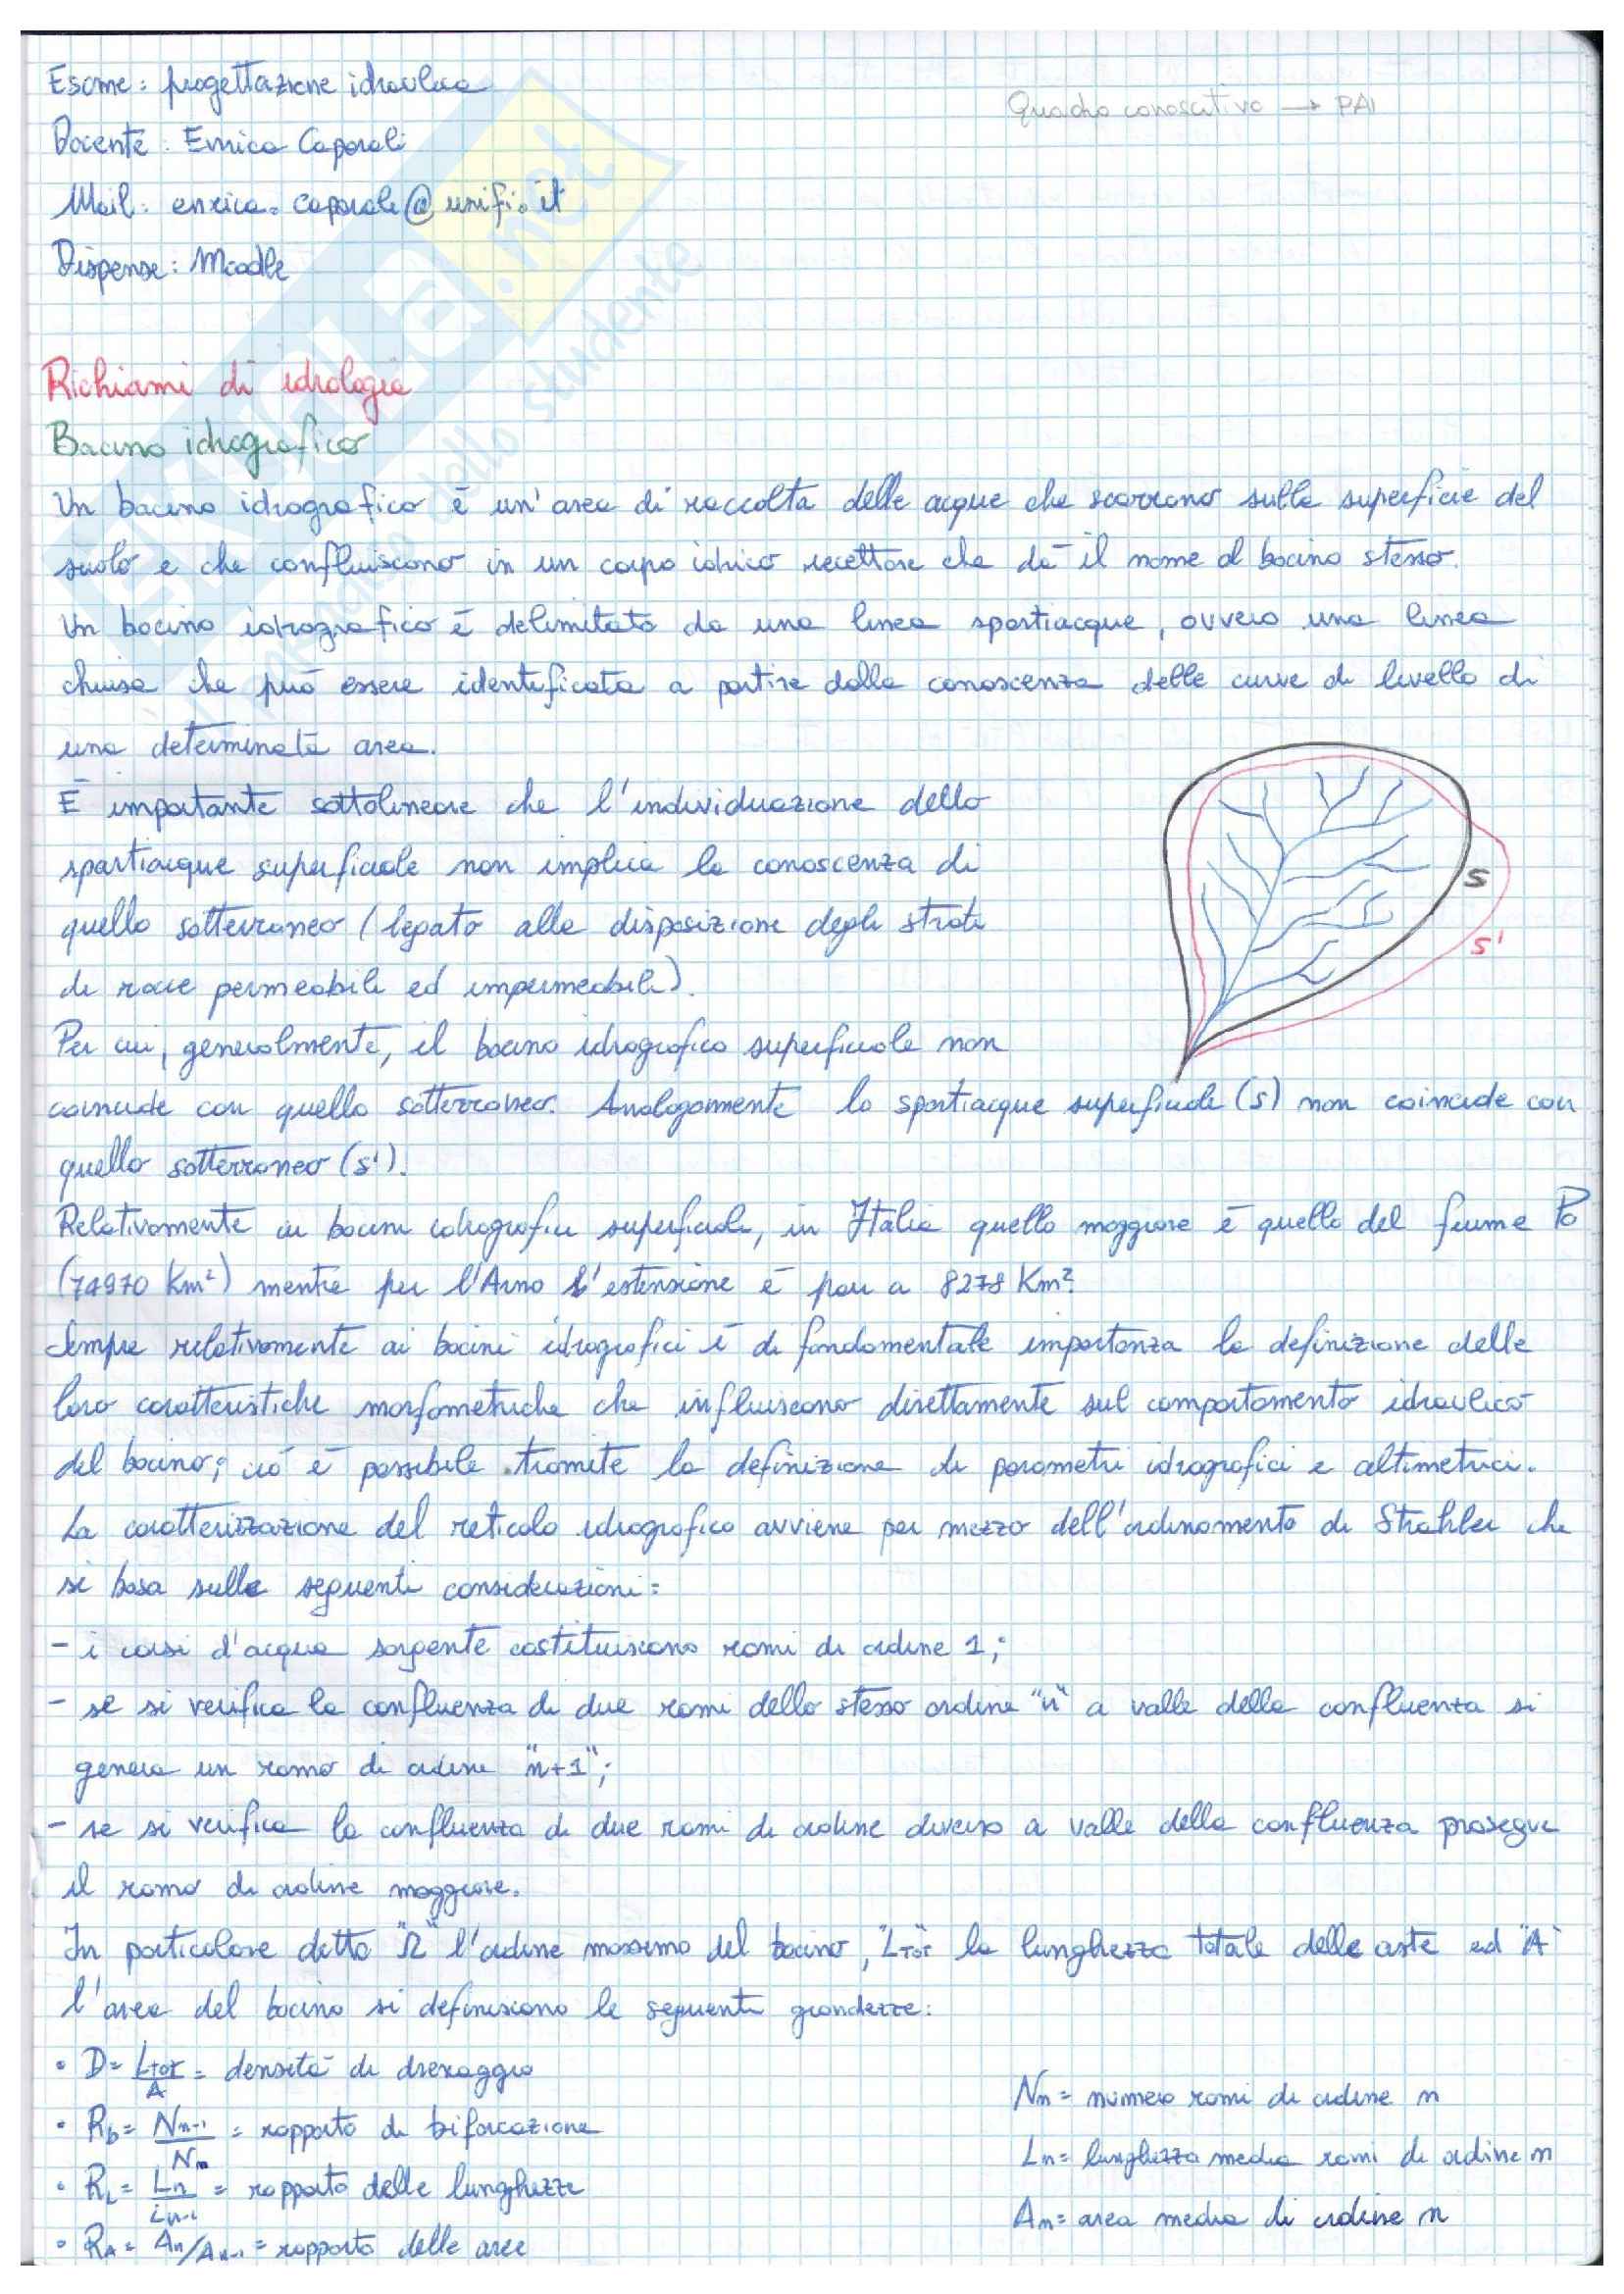 Esame: progettazione idraulica
Quadro conoscitivo → PAI
Docente: Enrica Caporali
Mail: enrica.caporali@unifi.it
Dispense: Moodle
Richiami di idrologia
Bacino idrografico
Un bacino idrografico è un'area di raccolta delle acque che scorrono sulla superficie del
suolo e che confluiscono in un corpo idrico recettore che dà il nome al bacino stesso.
Un bacino idrografico è delimitato da una linea spartiacque, ovvero una linea
chiusa che può essere identificata a partire dalla conoscenza delle curve di livello di
una determinata area.
È importante sottolineare che l'individuazione dello
spartiacque superficiale non implica la conoscenza di
quello sotterraneo (legato alla disposizione degli strati
di rocce permeabili ed impermeabili).
Per cui, generalmente, il bacino idrografico superficiale non
coincide con quello sotterraneo. Analogamente lo spartiacque superficiale (s) non coincide con
quello sotterraneo (s').
S
S'
Relativamente ai bacini idrografici superficiali, in Italia quello maggiore è quello del fiume Po
(74970 Km²) mentre per l'Arno l'estensione è pari a 8278 Km².
Sempre relativamente ai bacini idrografici è di fondamentale importanza la definizione delle
loro caratteristiche morfometriche che influiscono direttamente sul comportamento idraulico
del bacino; ciò è possibile tramite la definizione di parametri idrografici e altimetrici.
La caratterizzazione del reticolo idrografico avviene per mezzo dell'ordinamento di Strahler che
si basa sulle seguenti considerazioni:
- i corsi d'acqua sorgente costituiscono rami di ordine 1;
- se si verifica la confluenza di due rami dello stesso ordine "n" a valle della confluenza si
genera un ramo di ordine "n+1";
- se si verifica la confluenza di due rami di ordine diverso a valle della confluenza prosegue
il ramo di ordine maggiore.
In particolare detto "Ω" l'ordine massimo del bacino, "LTOT" la lunghezza totale delle aste ed "A"
l'area del bacino si definiscono le seguenti grandezze:
• D = LTOT/A = densità di drenaggio
• Rb = Nn-1/Nn = rapporto di biforcazione
• RL = Ln/Ln-1 = rapporto delle lunghezze
• RA = An/An-1 = rapporto delle aree
Nn = numero rami di ordine n
Ln = lunghezza media rami di ordine n
An = area media di ordine n
EXVLA.net
il paradiso dello studente